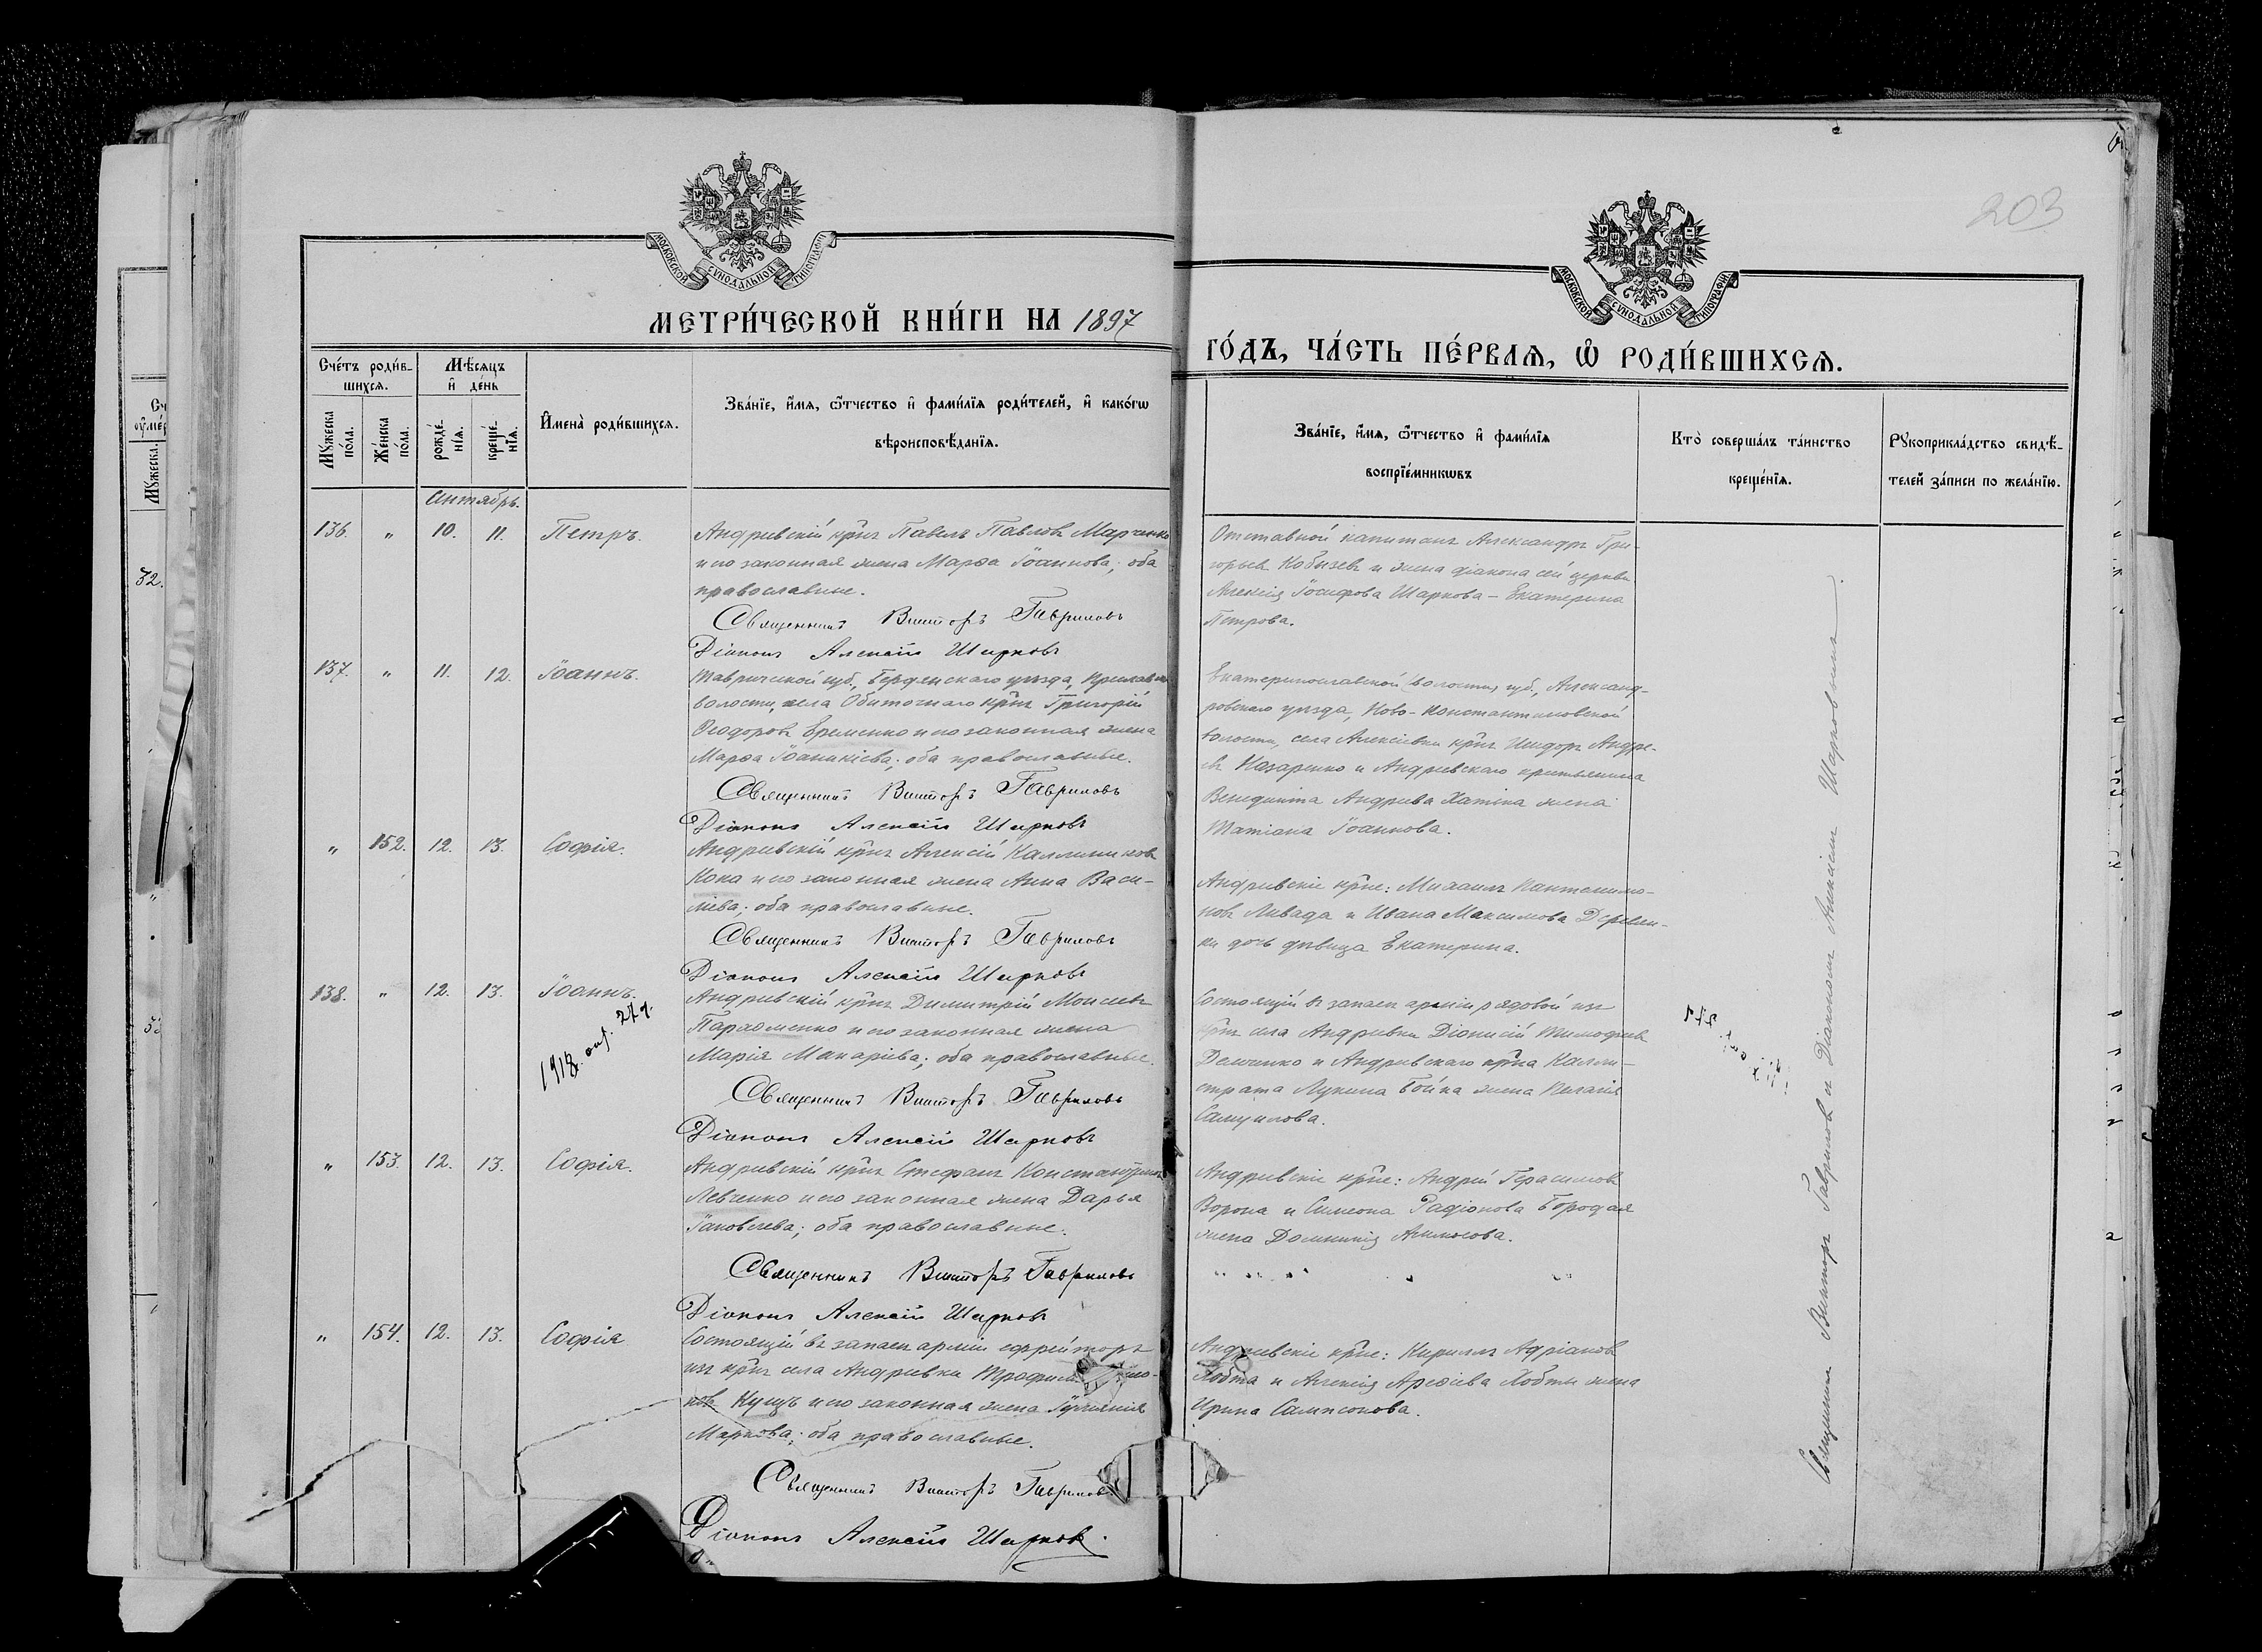 203
МОСКОВСКОЙ СѴНОДАЛЬНОЙ ТИПОГРАФІИ
МОСКОВСКОЙ СѴНОДАЛЬНОЙ ТИПОГРАФІИ
МЕТРИ́ЧЕСКОЙ КНИ́ГИ НА 1897
ГО́ДЪ, ЧА́СТЬ ПЕ́РВАЯ, Ѡ҆ РОДИ́ВШИХСЯ.
Сче́тъ роди́в-
шихся.
Мѣ́сяцъ
и҆ де́нь
Мꙋ́жеска по́ла.
Же́нска по́ла.
рожде́-
нія.
креще́-
нія.
И҆мена̀ роди́вшихся.
Зва́нїе, и҆́мя, ѻ҆́тчество и҆ фами́лїя роди́телей, и҆ како́гѡ
вѣроисповѣ́данїя.
Зва́нїе, и҆́мя, ѻ҆́тчество и҆ фами́лїя
воспрїе́мникѡвъ
Кто̀ соверша́лъ та́инство
креще́нїя.
Рꙋкоприкла́дство свидѣ́-
телей за́писи по жела́нїю.
Сентябрь.
136. " 10. 11. Петръ.
Андреевскій крнъ Павелъ Павловъ Марченко
и его законная жена Марѳа Іоаннова; оба
православные.
Священникъ Викторъ Гавриловъ
Діаконъ Алексій Шарковъ
Отставной капитанъ Александръ Гри-
горьевъ Кобызевъ и жена діакона сей церкви
Алексія Іосифова Шаркова - Екатерина
Петрова.
137. " 11. 12. Іоаннъ.
Таврической губ., Бердянскаго уѣзда,
волости, села Обиточнаго крнъ Григорій
Ѳеодоровъ Еременко и его законная жена
Марѳа Іоанникіева; оба православные.
Священникъ Викторъ Гавриловъ
Діаконъ Алексій Шарковъ
Екатеринославской (волости) губ., Александ-
ровскаго уѣзда, Ново-Константиновской
волости, села Алексѣевки крнъ Исидоръ Андре-
евъ Назаренко и Андреевскаго крестьянина
Венедикта Андреева Хатіка жена
Татіана Іоаннова.
" 152. 12. 13. Софія.
Андреевскій крнъ Алексій Каллиниковъ
Кока и его законная жена Анна Васи-
ліева; оба православные.
Священникъ Викторъ Гавриловъ
Діаконъ Алексій Шарковъ
Андреевскіе крне: Михаилъ Пантелимо-
новъ Ливада и Ивана Максимова Деревян-
ки дочь дѣвица Екатерина.
138. " 12. 13. Іоаннъ.
1918. 279.
Андреевскій крнъ Димитрій Моисеевъ
Пархоменко и его законная жена
Марія Макаріева; оба православные.
Священникъ Викторъ Гавриловъ
Діаконъ Алексій Шарковъ
Состоящій въ запасѣ арміи рядовой изъ
крнъ села Андреевки Діонисій Тимофеевъ
Демченко и Андреевскаго крна Калли-
страта Лукина Бойка жена Пелагія
Самуилова.
" 153. 12. 13. Софія.
Андреевскій крнъ Стефанъ Константиновъ
Левченко и его законная жена Дарья
Іаковлева; оба православные.
Священникъ Викторъ Гавриловъ
Діаконъ Алексій Шарковъ
Андреевскіе крне: Андрей Герасимовъ
Ворона и Симеона Радіонова Бородая
жена Домникія
" 154. 12. 13. Софія
Состоящій въ запасѣ арміи ефрейторъ
изъ крнъ села Андреевки
новъ Кущъ и его законная жена Іуліанія
Маркова; оба православные.
Священникъ Викторъ Гавриловъ
Діаконъ Алексій Шарковъ.
Андреевскіе крне: Кириллъ Адріановъ
Хобта и Алексія Ареѳіева Хобты жена
Ирина Сампсонова.
Священникъ Викторъ Гавриловъ и Діакономъ Алексіемъ Шарковымъ.